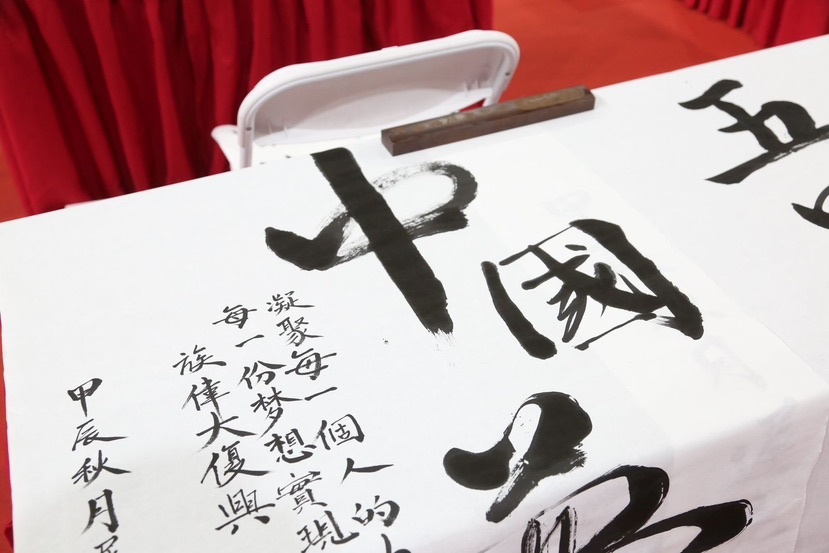 國
中
凝聚每一個人的
每一份梦想實現
族偉大復興
甲辰秋月